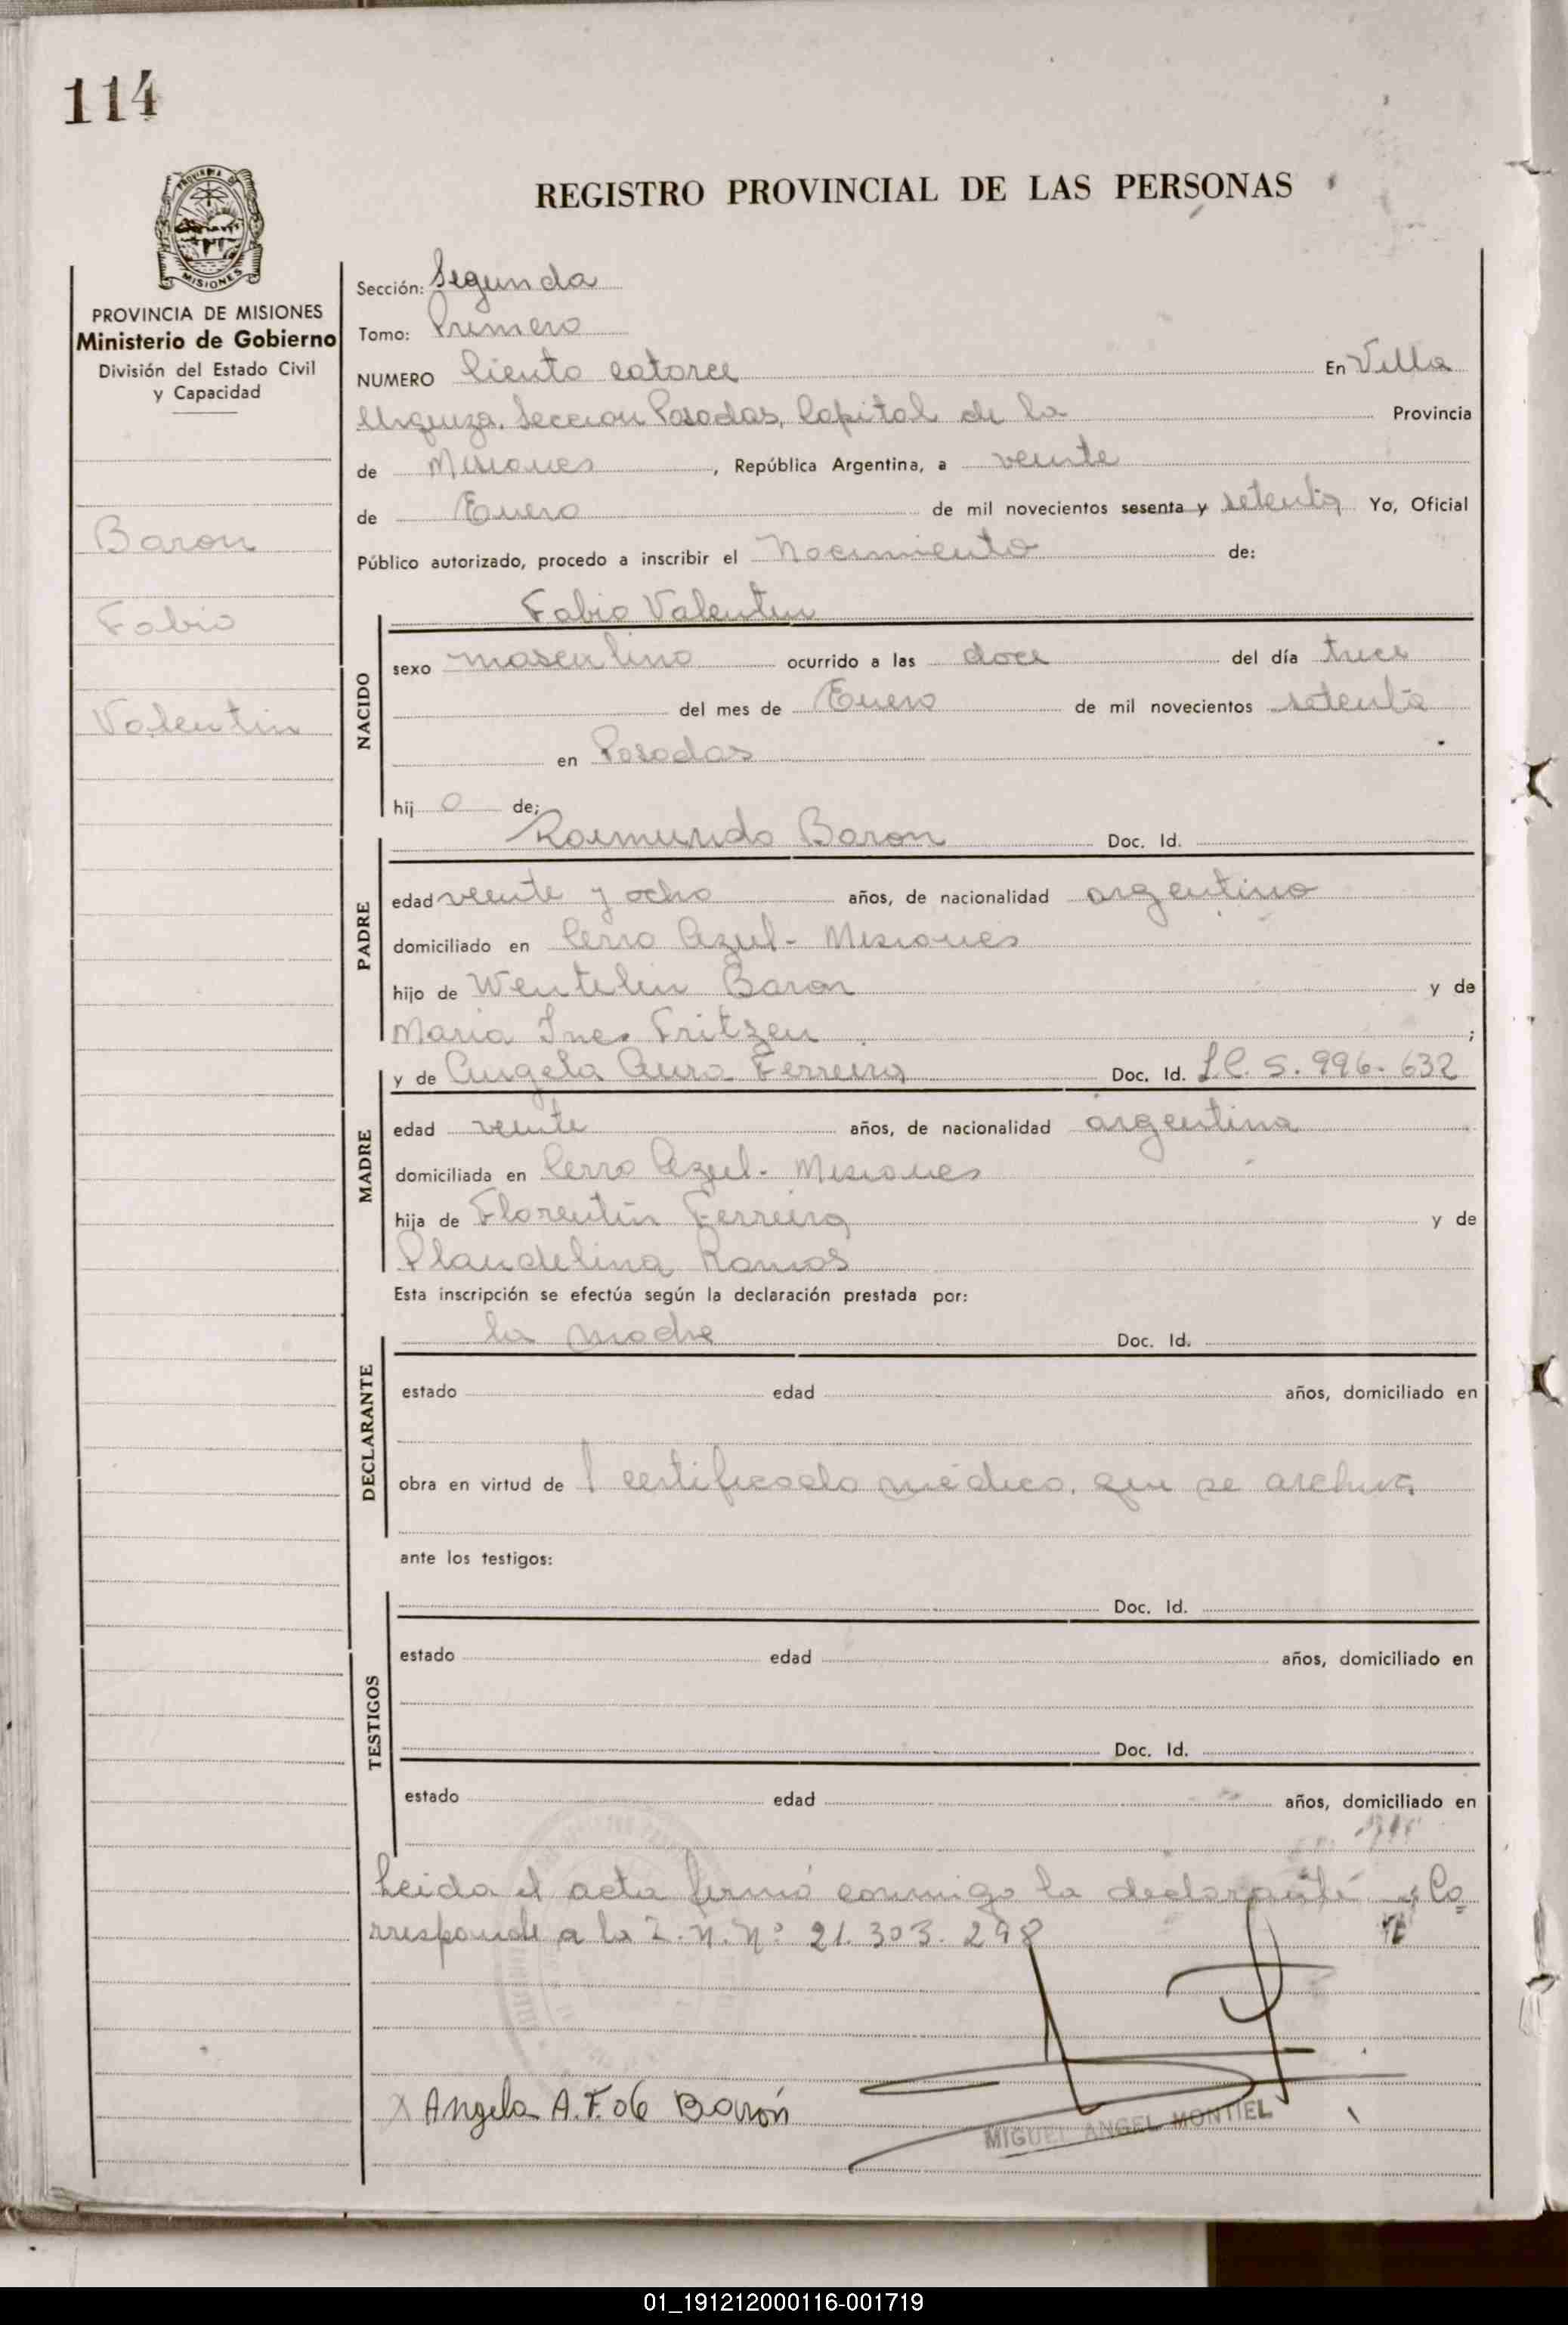 114
REGISTRO PROVINCIAL DE LAS PERSONAS
PROVINCIA DE MISIONES
Ministerio de Gobierno
División del Estado Civil
y Capacidad
Baron
Fabio
Valentin
Sección: Segunda
Tomo: Primero
NUMERO Ciento catorce En Villa
Urquiza. Seccion Posadas, Capital de la Provincia
de Misiones, República Argentina, a veinte
de Enero de mil novecientos sesenta y setenta Yo, Oficial
Público autorizado, procedo a inscribir el Nacimiento de:
NACIDO
Fabio Valentin
sexo masculino ocurrido a las doce del día trece
del mes de Enero de mil novecientos setenta
en Posadas
hijo de;
PADRE
Raimundo Baron Doc. Id.
edad veinte y ocho años, de nacionalidad argentino
domiciliado en Cerro Azul - Misiones
hijo de Wentelin Baron y de
Maria Ines Fritzen ;
MADRE
y de Angela Aura Ferreira Doc. Id. L.C. 5.996.632
edad veinte años, de nacionalidad argentina
domiciliada en Cerro Azul - Misiones
hija de Florentin Ferreira y de
Plandelina Ramos
Esta inscripción se efectúa según la declaración prestada por:
DECLARANTE
la madre Doc. Id.
estado edad años, domiciliado en
obra en virtud de 1 certificado médico, que se archiva.
ante los testigos:
TESTIGOS
Doc. Id.
estado edad años, domiciliado en
Doc. Id.
estado edad años, domiciliado en
Leida el acta firmó conmigo la declarante y Co=
rresponde a la L.N. Nº 21.303.298
Angela A. F. de Barón
MIGUEL ANGEL MONTIEL
01_191212000116-001719